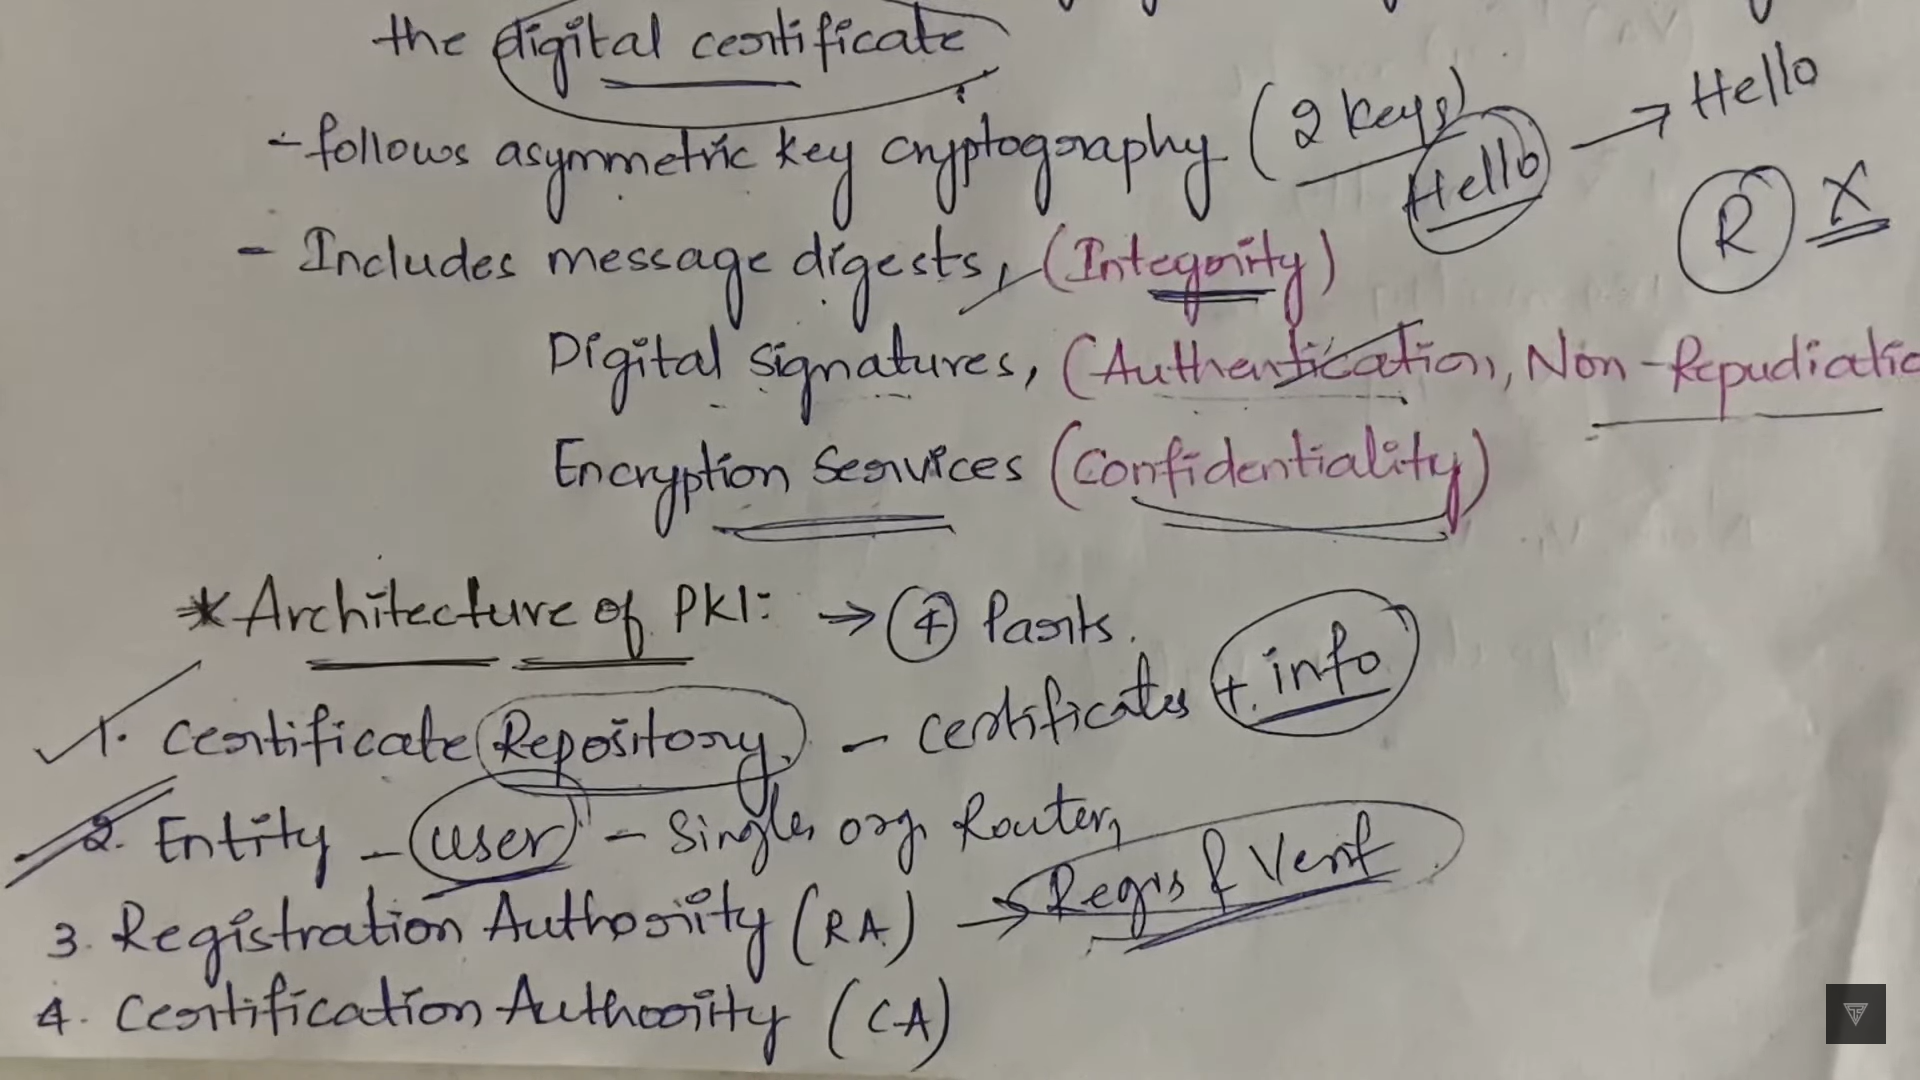 the digital certificate
- follows asymmetric key cryptography (2 keys)
Hello → Hello
R X
- Includes message digests, (Integrity)
Digital signatures, (Authentication, Non-Repudiatio
Encryption Services (Confidentiality)
* Architecture of PKI: → 4 Parts.
1. Certificate Repository. - certificates + info
2. Entity - user - Single, org, Router,
3. Registration Authority (RA) → Regis & Verif
4. Certification Authority (CA)